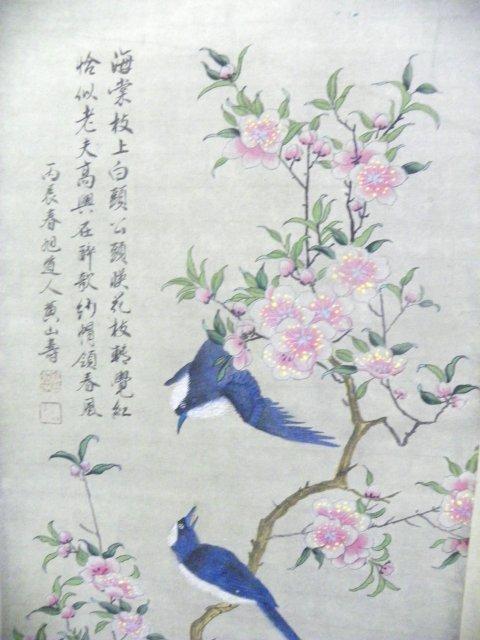 海棠枝上白頭公頭映花枝轉覺紅
恰似老夫高興在醉歌紗帽領春風
丙辰春旭道人黃山壽